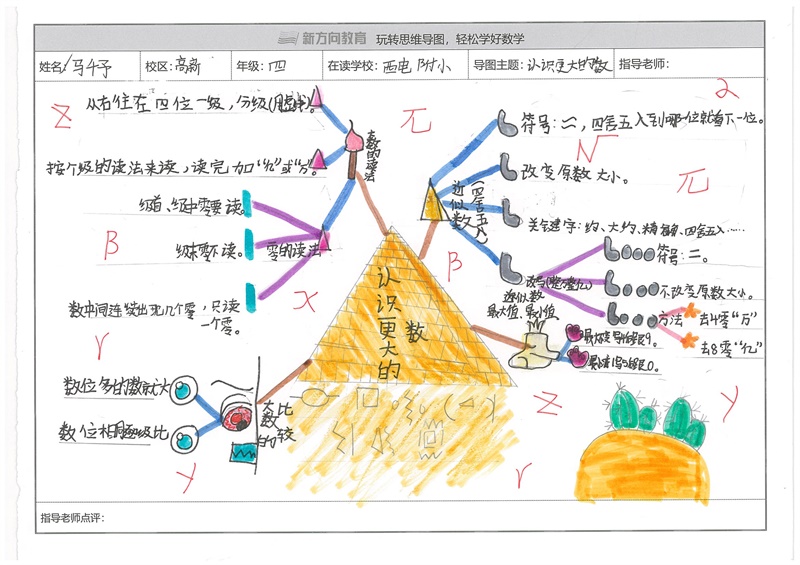 新方向教育 玩转思维导图，轻松学好数学
姓名：马
校区：高新
年级：四
在读学校：西电附小
导图主题：认识更大的数
指导老师：
从右往左四位一级，分级
大数的读法
按个级的读法来读，读完加“亿”或“万”。
级首、级中零要读。
级末零不读。
零的读法
数中间连续出现几个零，只读
一个零。
数位多的数就大
数位相同
大数的比较
认识更大的数
近似数
（四舍五入）
符号：≈，四舍五入到哪一位就看下一位。
改变原数大小。
关键字：约、大约、精确、四舍五入……
符号：=。
不改变原数大小。
方法
去4零“万”
去8零“亿”
近似数
最大值、最小值
Z
π
2
N
π
β
β
X
r
Z
y
y
r
指导老师点评：